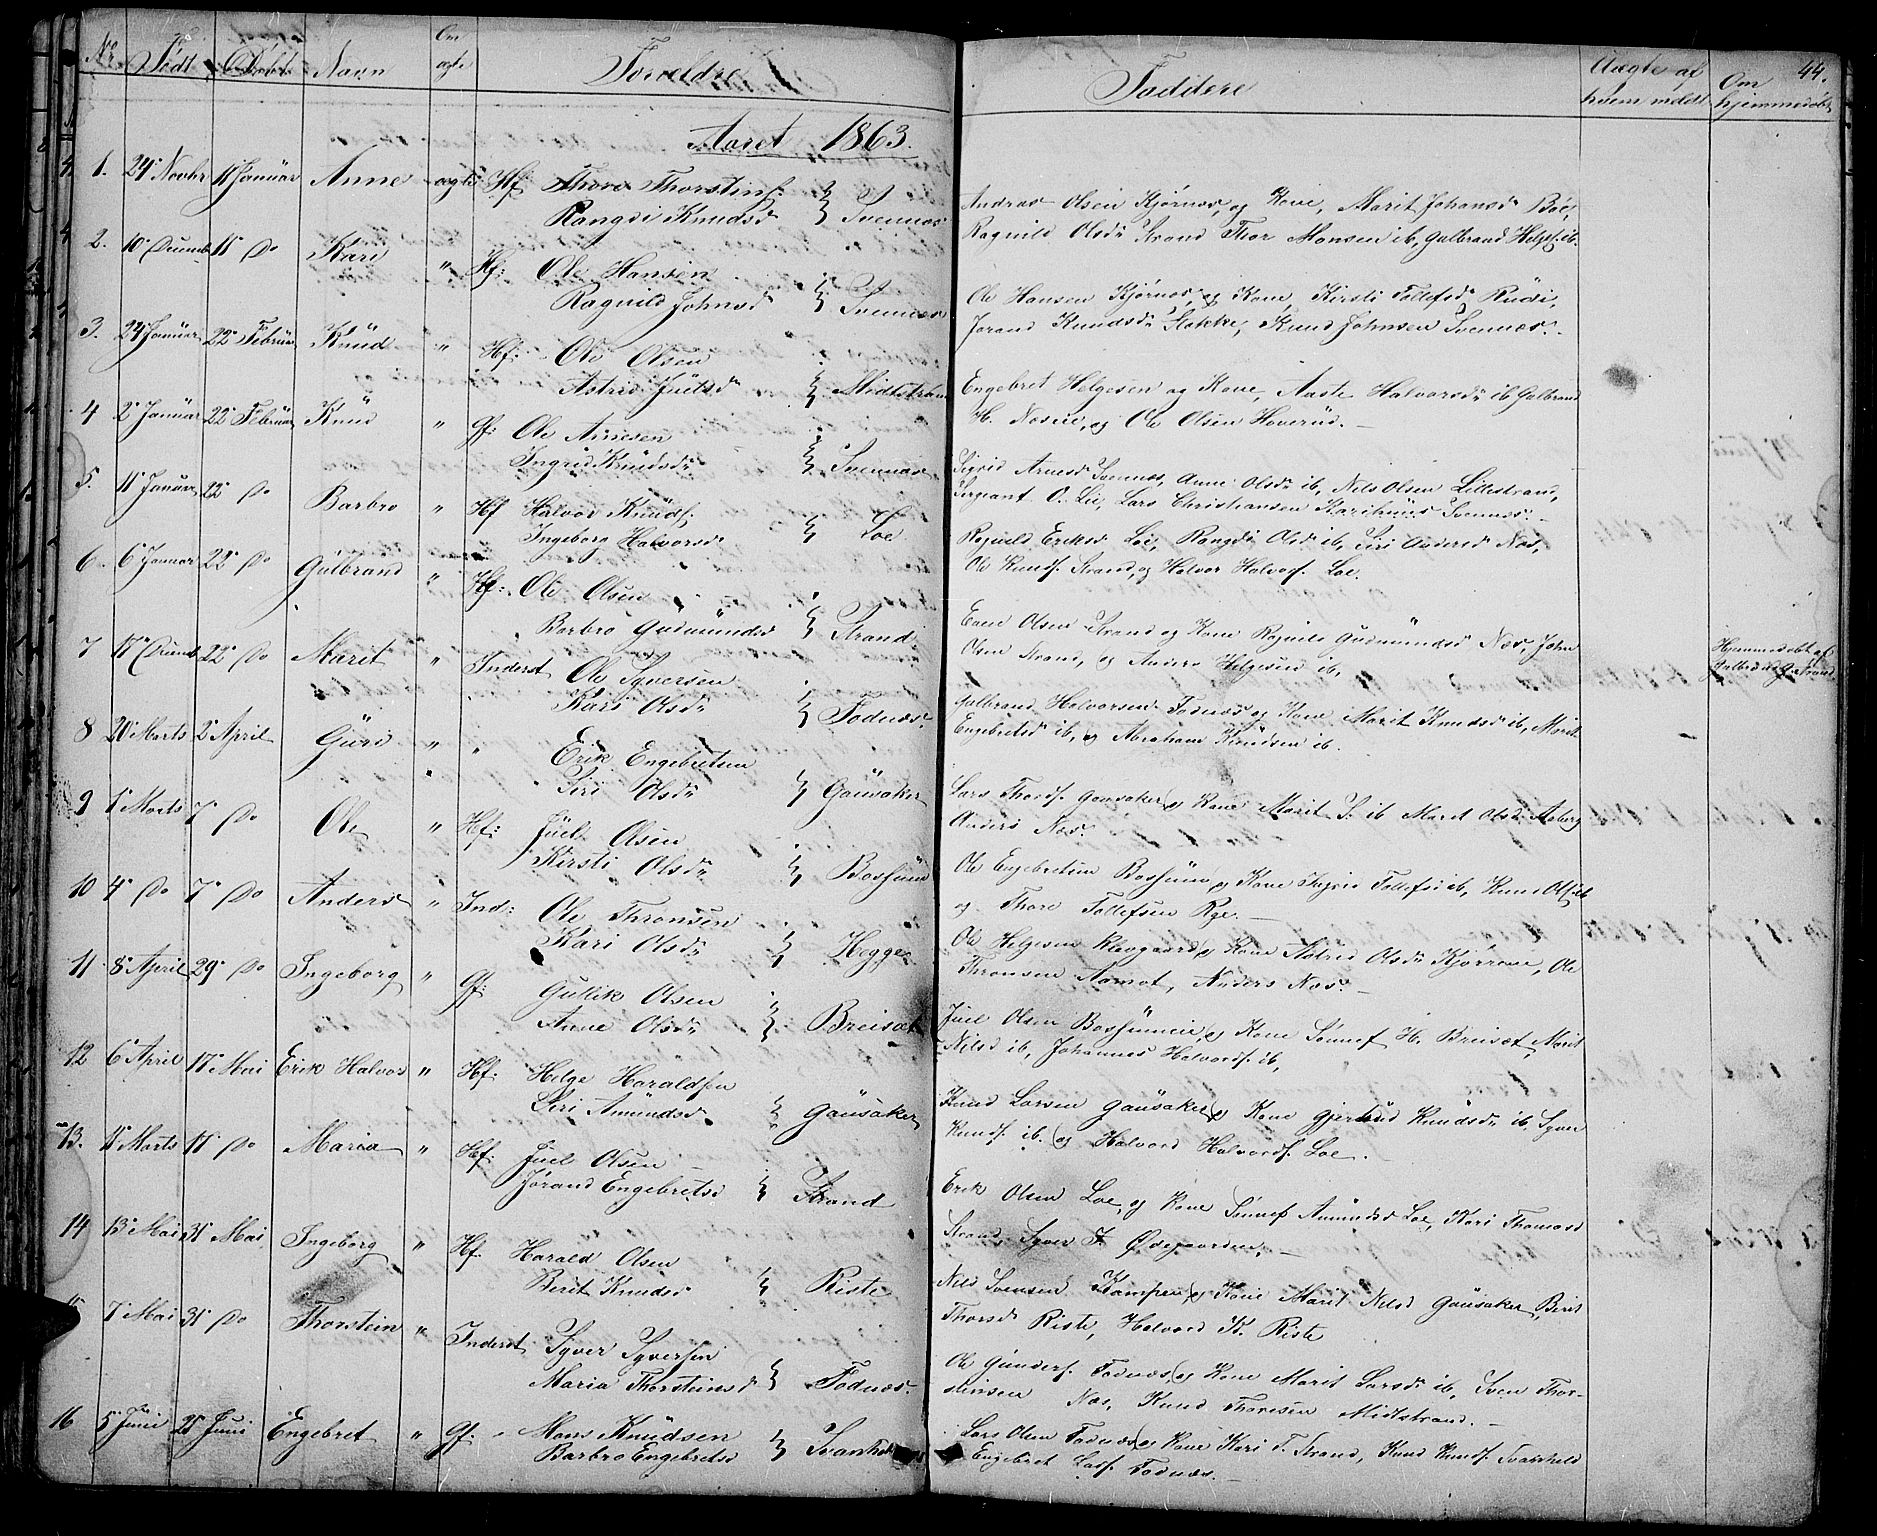 44.
Nr. Födt Döbt Navn Om ægte Forældre Faddere Uægte af hvem meldt Om hjemmedöbt
Aaret 1863.
1. 24 Novbr 11 Januar Anne ægte Hf. Thore Thorstins.
Rangdi Knudsd. Svennes
Andreas Olsen Kjørnæs, og Kone, Marit Johansdr Boe,
Ragnild Olsdr Strand Thor Monsen ib, Gulbrand Helges. ib.
2. 10 Decemb 11 Do Kari " Hf: Ole Hansen
Ragnild Johnsd Svennes
Ole Hansen Kjørnæs, og Kone, Kirsti Tollefsdr Rudi,
Jørand Knudsdr Slakke, Knud Johnsen Svennæs.
3. 24 Januar 22 Februar Knud " Hf. Ole Olsen
Astrid Juelsd Midtstrand
Engebret Helgesen og Kone, Aaste Halvorsdr ib Gulbrand
H. Næseie, og Ole Olsen Hoverud.
4 2 Januar 22 Februar Knud " Gf: Ole Arnesen
Ingrid Knudsdr Svennæs
Sigrid Arnesdr Svennæs, Anne Olsdr ib, Nils Olsen Lillestrand,
Sergeant O. Lie, Lars Christiansen Svennæs.
5. 11 Januar 22 Do Barbro " Hf Halvor Knuds.
Ingeborg Halvorsd Loe
Ragnild Eriksd Loe, Rangdi Olsd ib, Siri Andersd Næs,
Ole Knuds. Strand, og Halvor Halvors. Loe.
6. 6 Januar 22 Do Gulbrand " Hf: Ole Olsen
Barbro Gudmundsd Strand
Even Olsen Strand og Kone Ragnild Gudmundsd Næs, John
Olsen Strand, og Anders Helgesen ib,
7 17 Decemb 22 Do Marit " Inderst Ole Syversen
Kari Olsdr Fodnæs
Gulbrand Halvorsen Fodnæs og Kone Marit Knudsdr ib, Marit
Engebretsd ib, og Abraham Knudsen ib.
Hjemmedöbt af
8 20 Marts 2 April Guri " " Erik Engebretsen
Siri Olsdr Gausaker
Lars Thords. Gausaker og Kone Marit S. ib Marit Olsdr Aaberg
Anders Næs.
9 1 Marts 7 Do Ole " Hf: Juel Olsen
Kirsti Olsdr Boehjum
Ole Engebretsen og Kone Ingrid Tollefsd ib, Knud Ols. ib
og Thore Tollefsen Rye.
10 4 Do 7 Do Anders " Ind: Ole Thronsen
Kari Olsdr Hegge
Ole Helgesen Klevgaard og Kone Astrid Olsdr Kjørrene, Ole
Thronsen Aamot, Anders Næs.
11 8 April 29 Do Ingeborg " Gf. Gullik Olsen
Anne Olsdr Breisæt
Juel Olsen og Kone Sønnef H. Breisæt, Marit
Nilsd ib, Johannes Halvords. ib,
12 6 April 17 Mai Erik Halvor " Hf. Helge Haraldsen
Siri Amundsd Gausaker
Knud Larsen Gausaker og Kone Gjertrud Knudsdr ib, Syver
Knuds. ib. og Halvord Halvords. Loe.
13. 11 Marts 17 Do Maria " Hf. Juel Olsen
Jørand Engebretsd Strand
Erik Olsen Loe, og Kone Sønnef Amundsd Loe, Kari Thomasd
Strand, Syver J. Ødegaarden,
14 13 Mai 31 Mai Ingeborg " Hf. Harald Olsen
Berit Knudsd Riste
Nils Svensen Kampen, og Kone Marit Nilsd Gausaker, Berit
Thorsd Riste, Halvord K. Riste
15 7 Mai 31 Do Thorstein " Inderst Syver Syversen
Maria Thorsteinsd Fodnæs.
Ole Gunders. Fodnæs, og Kone Marit Larsdr ib, Sven Thor-
stensen Næs, Knud Thoresen Midtstrand.
16 5 Juni 21 Juni Engebret " Gf. Mons Knudsen
Barbro Engebretsd Svanheld
Lars Olsen Fodnæs og Kone Kari T. Strand, Knud Knuds. Svanheld
Engebret Lars. Fodnæs.